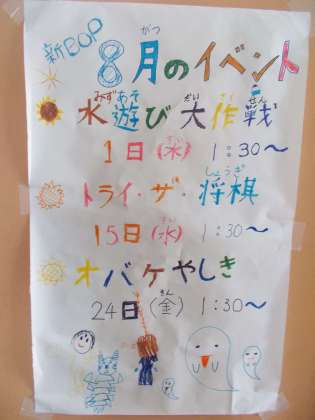 新BOP
8月のイベント
がつ
水遊び大作戦
みずあそ だい せん
1日(水)1:30〜
トライ・ザ・将棋
しょうぎ
15日(水)1:30〜
オバケやしき
24日(金)1:30〜
きん